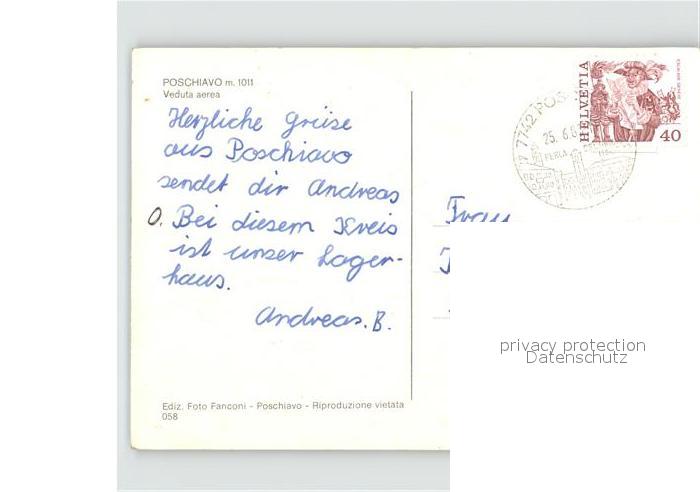 POSCHIAVO m. 1011
Veduta aerea
Herzliche Grüsse
aus Poschiavo
sendet dir Andreas
O. Bei diesem Kreis
ist unser Lager-
haus.
Andreas. B.
Ediz. Foto Fanconi - Poschiavo - Riproduzione vietata
058
HELVETIA
40
7742 POS
25. 6. 8
PERLA
Frau
privacy protection
Datenschutz